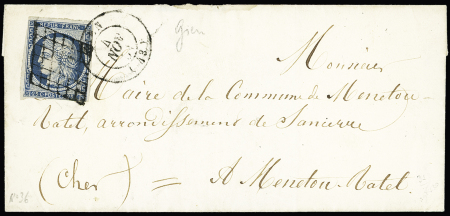 REPUB. FRANC.
4
NOV
Gien
Monsieur
Maire de la Commune de Menetou-
Ratel, arrondissement de Sancerre
(Cher) = A Menetou-Ratel.